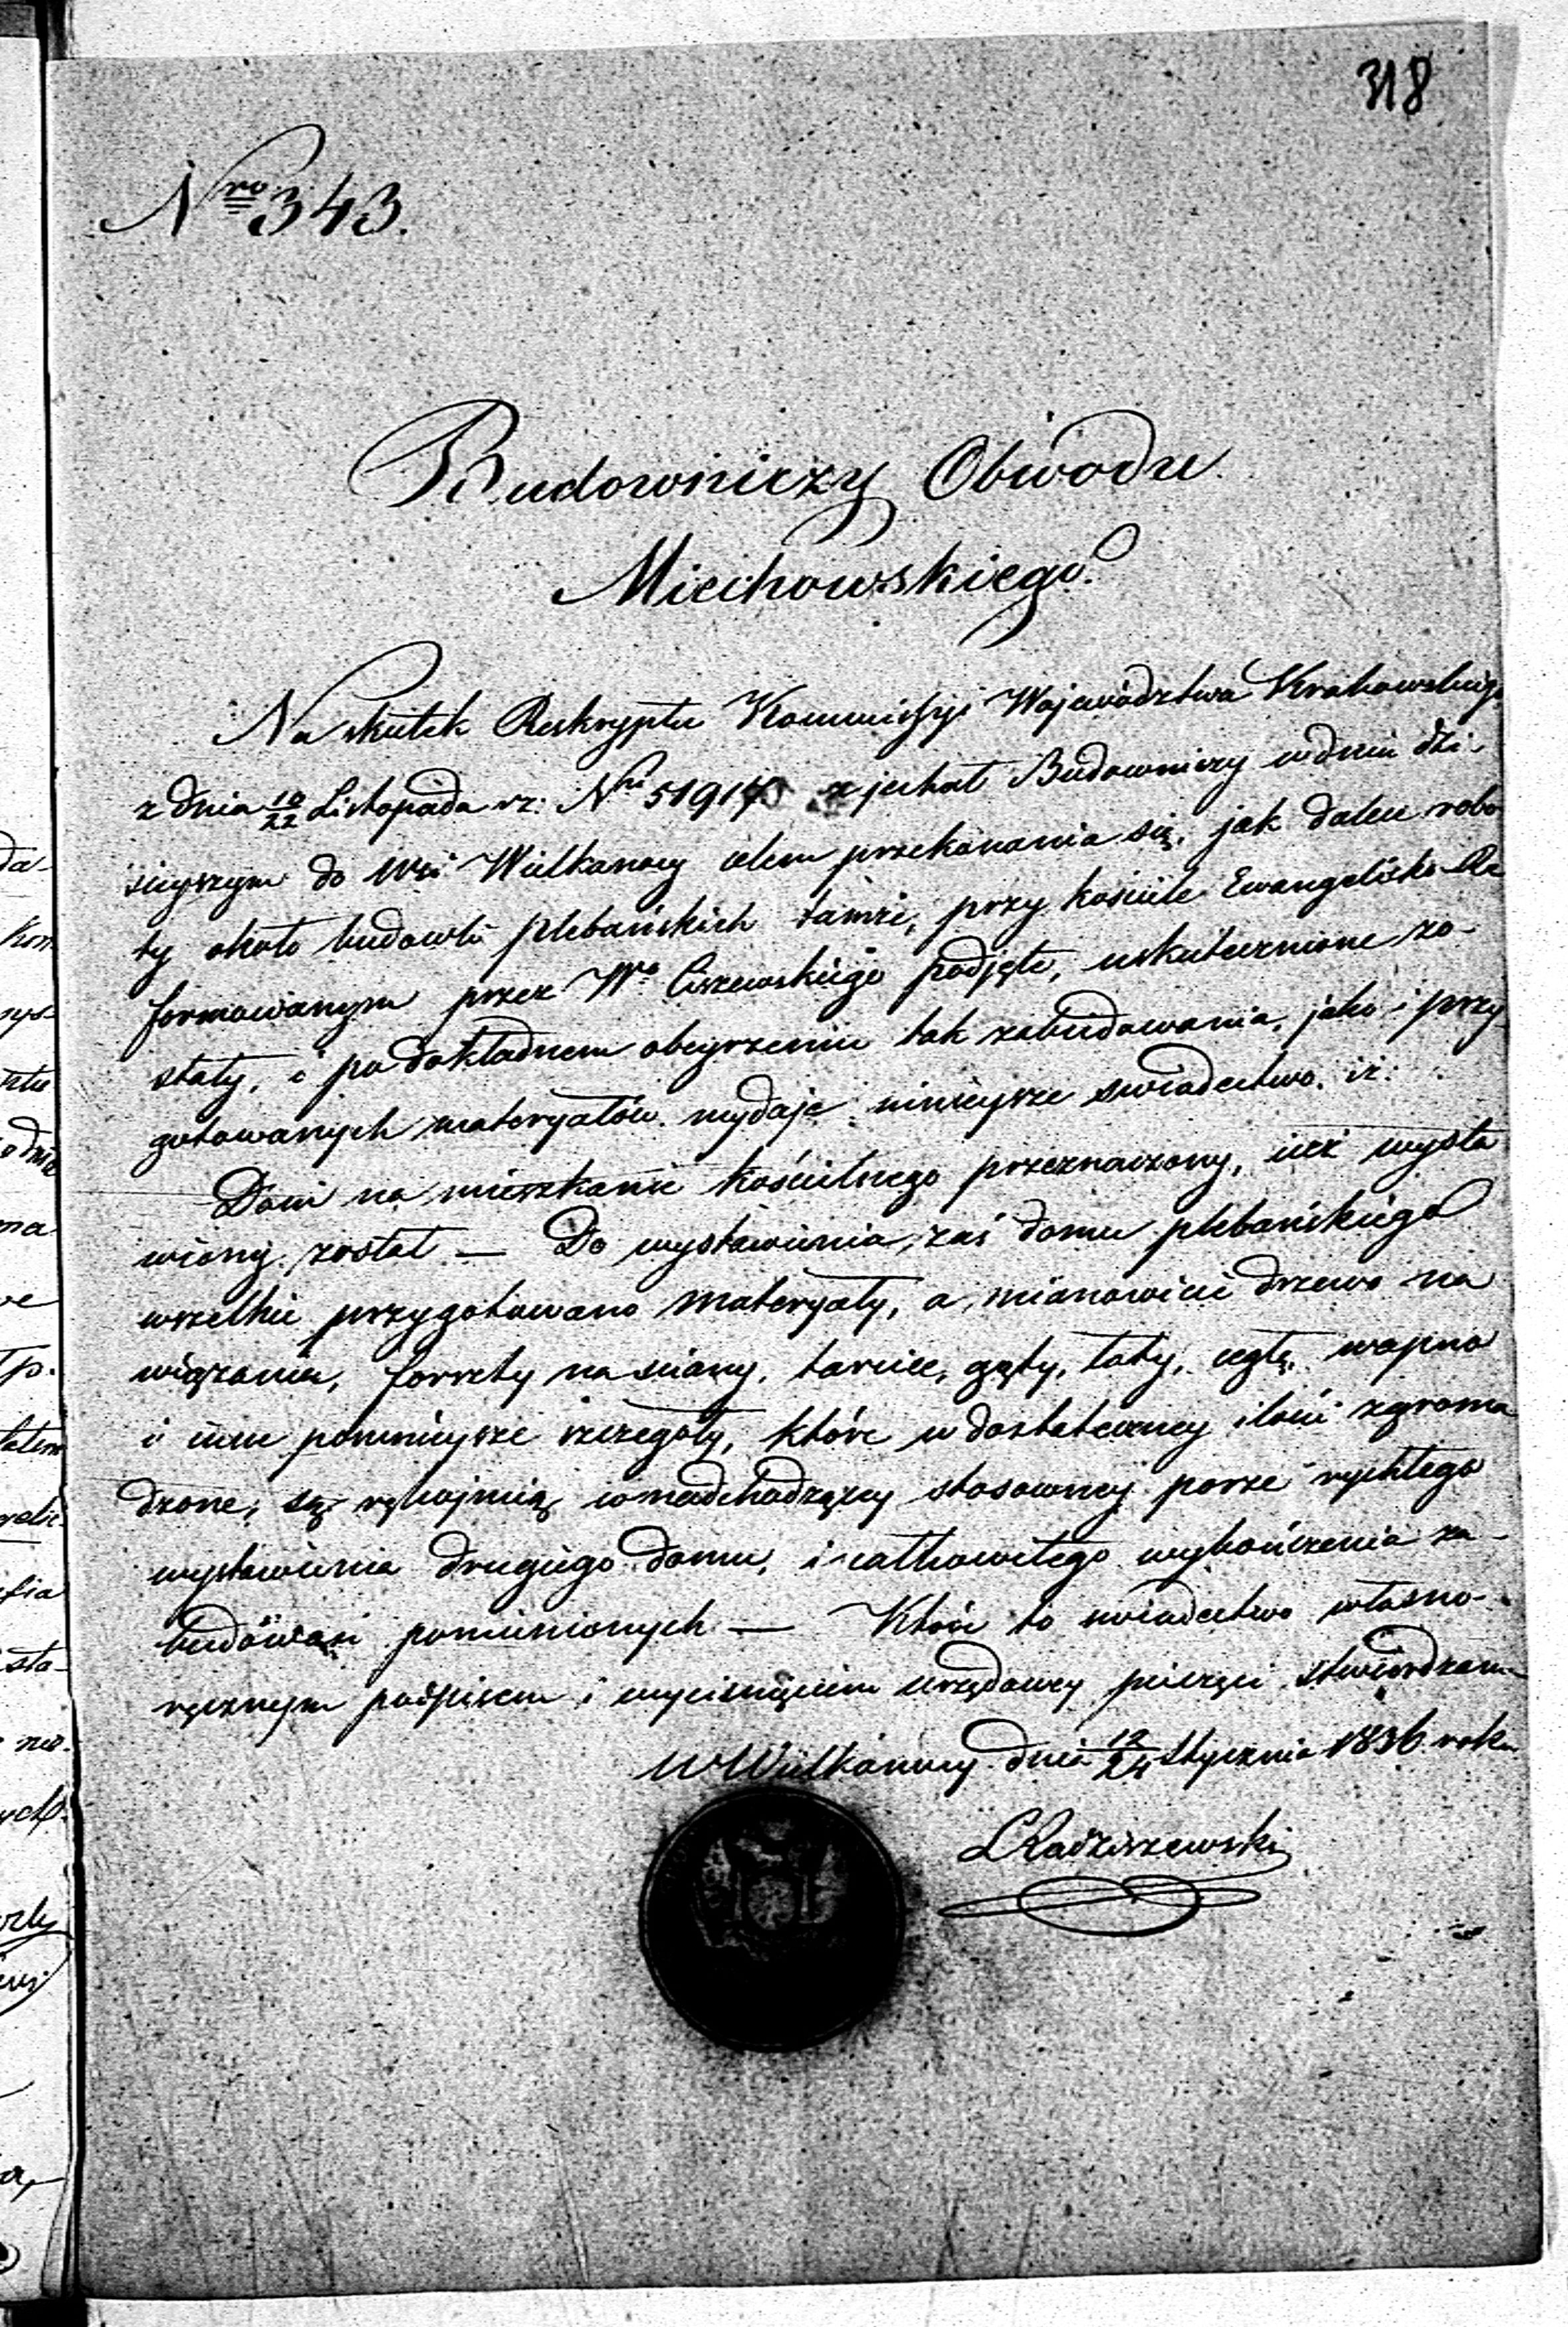 318
Nro 343.
Budowniczy Obwodu
Miechowskiego.
Na skutek Reskryptu Kommissyi Województwa Krakowskiego
z dnia 10/22 Listopada rz: Nro 51914 zjechał Budowniczy w dniu dzi-
sieyszym do Wsi Wielkanocy celem przekonania się, jak dalece robo
ty około budowli plebańskich tamże, przy kościele Ewangelicko-Re
formowanym przez Wo Ciszewskiego podjęte, uskutecznione zo-
stały, i po dokładnem obeyrzeniu tak zabudowania, jako i przy
gotowanych materyałów wydaje ninieysze swiadectwo, iż:
Dom na mieszkanie kościelnego przeznaczony, już wysta
wiony został — Do wystawienia zaś domu plebańskiego
wszelkie przygotowano materyały, a mianowicie drzewo na
wiązania, forszty na sciany, tarcice, gąty, łaty, cegłę wapno
i inne pomnieysze szczegóły, które w dostateczney ilości zgroma
dzone, są rękojmią w nadchodzącey stosowney porze rychłego
wystawienia drugiego domu, i całkowitego wykończenia za-
budowań pomienionych — Które to swiadectwo własno-
ręcznym podpisem i wyciśnięciem urzędowey pieczęci stwierdzam
w Wielkanocy dnia 12/24 Stycznia 1836 roku
LRadziszewski